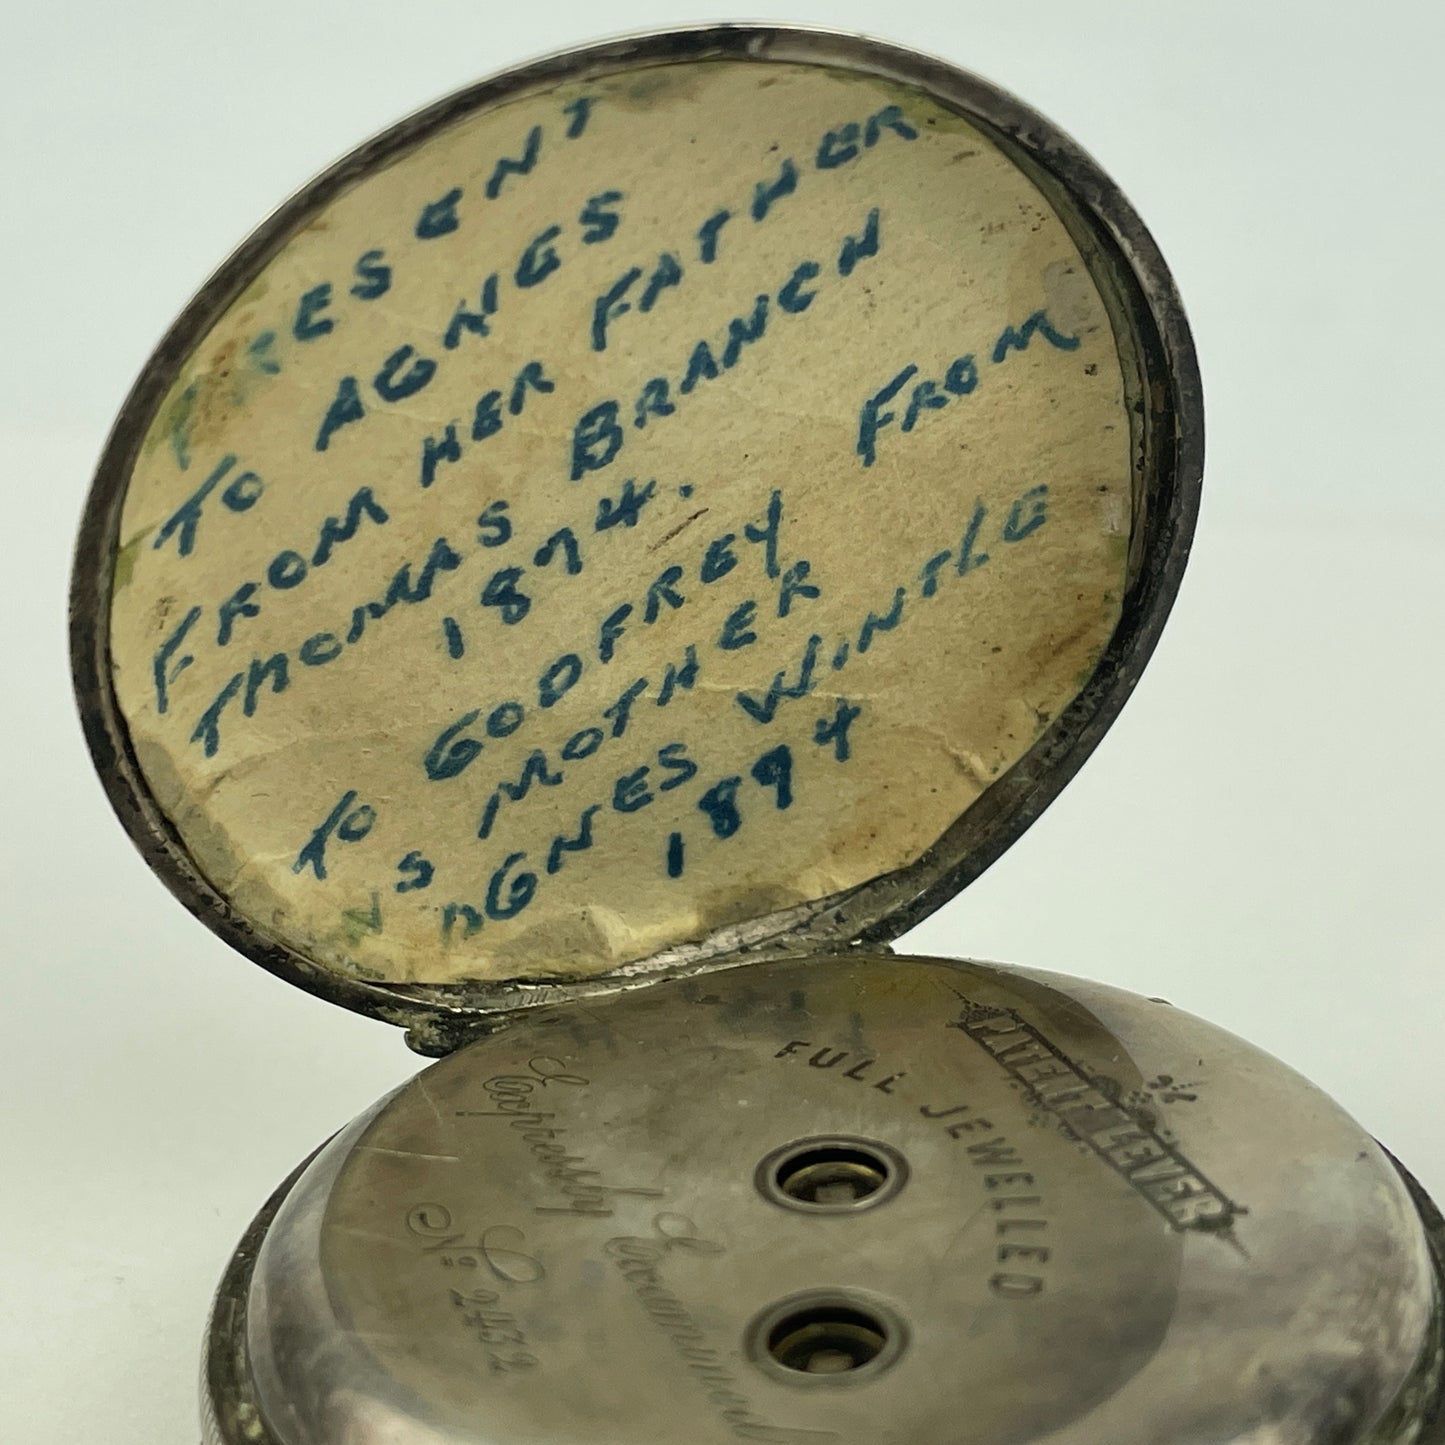 PRESENT
TO AGNES
FROM HER FATHER
THOMAS BRANCH
1874.
FROM
TO GODFREY
S MOTHER
AGNES WINTLE
1894
PATENT LEVER
FULL JEWELLED
Expressly Examined
No 2432